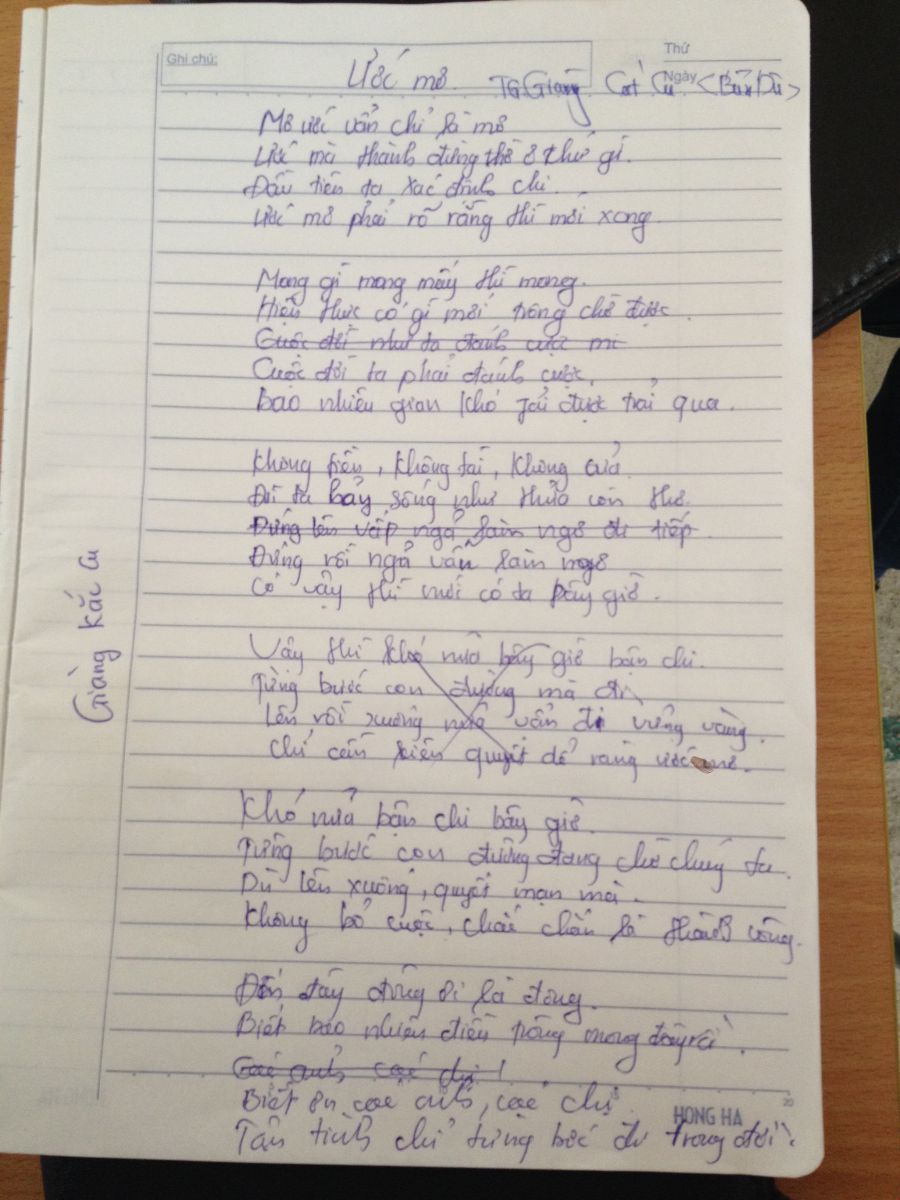 Ghi chú:
Thứ
Ngày
Ước mơ. TG Giàng Cắt Cu <Bún Dù>
Mơ ước vẫn chỉ là mơ
Ước mà thành đừng thờ ơ thứ gì.
Đầu tiên ta xác định chi.
Ước mơ phải rõ ràng thì mới xong.
Mong gì mong mấy thì mong.
Hiện thực có gì mới trông chờ được.
Cuộc đời như ta đánh cược mi
Cuộc đời ta phải đánh cược.
bao nhiêu gian khó gửi được trải qua.
không tiền, không tài, không cửa
Đời ta bảy sống như thửa còn thơ.
Đứng lên vấp ngả làm ngơ đi tiếp.
Đứng rồi ngả vẫn làm ngơ
Có vậy thì mới có ta bây giờ.
Vậy thì khó nữa bây giờ bận chi.
Từng bước con đường mà đi
Lên rồi xuống nữa vẫn đi vững vàng.
chỉ cần kiên quyết dể ràng ước mơ.
Khó nửa bận chi bây giờ.
Từng bước con đường đang chờ chúng ta.
Dù lên xuống, quyết mạn mà.
không bỏ cuộc, chắc chắn là thành công.
Đến đây đứng ơi là đông.
Biết bao nhiêu điều trông mong đây rồi.
Các anh các chị!
Biết ơn các anh, các chị
Tận tình chỉ từng bước đi trong đời.
Giàng Kắc Cu
20
HONG HA